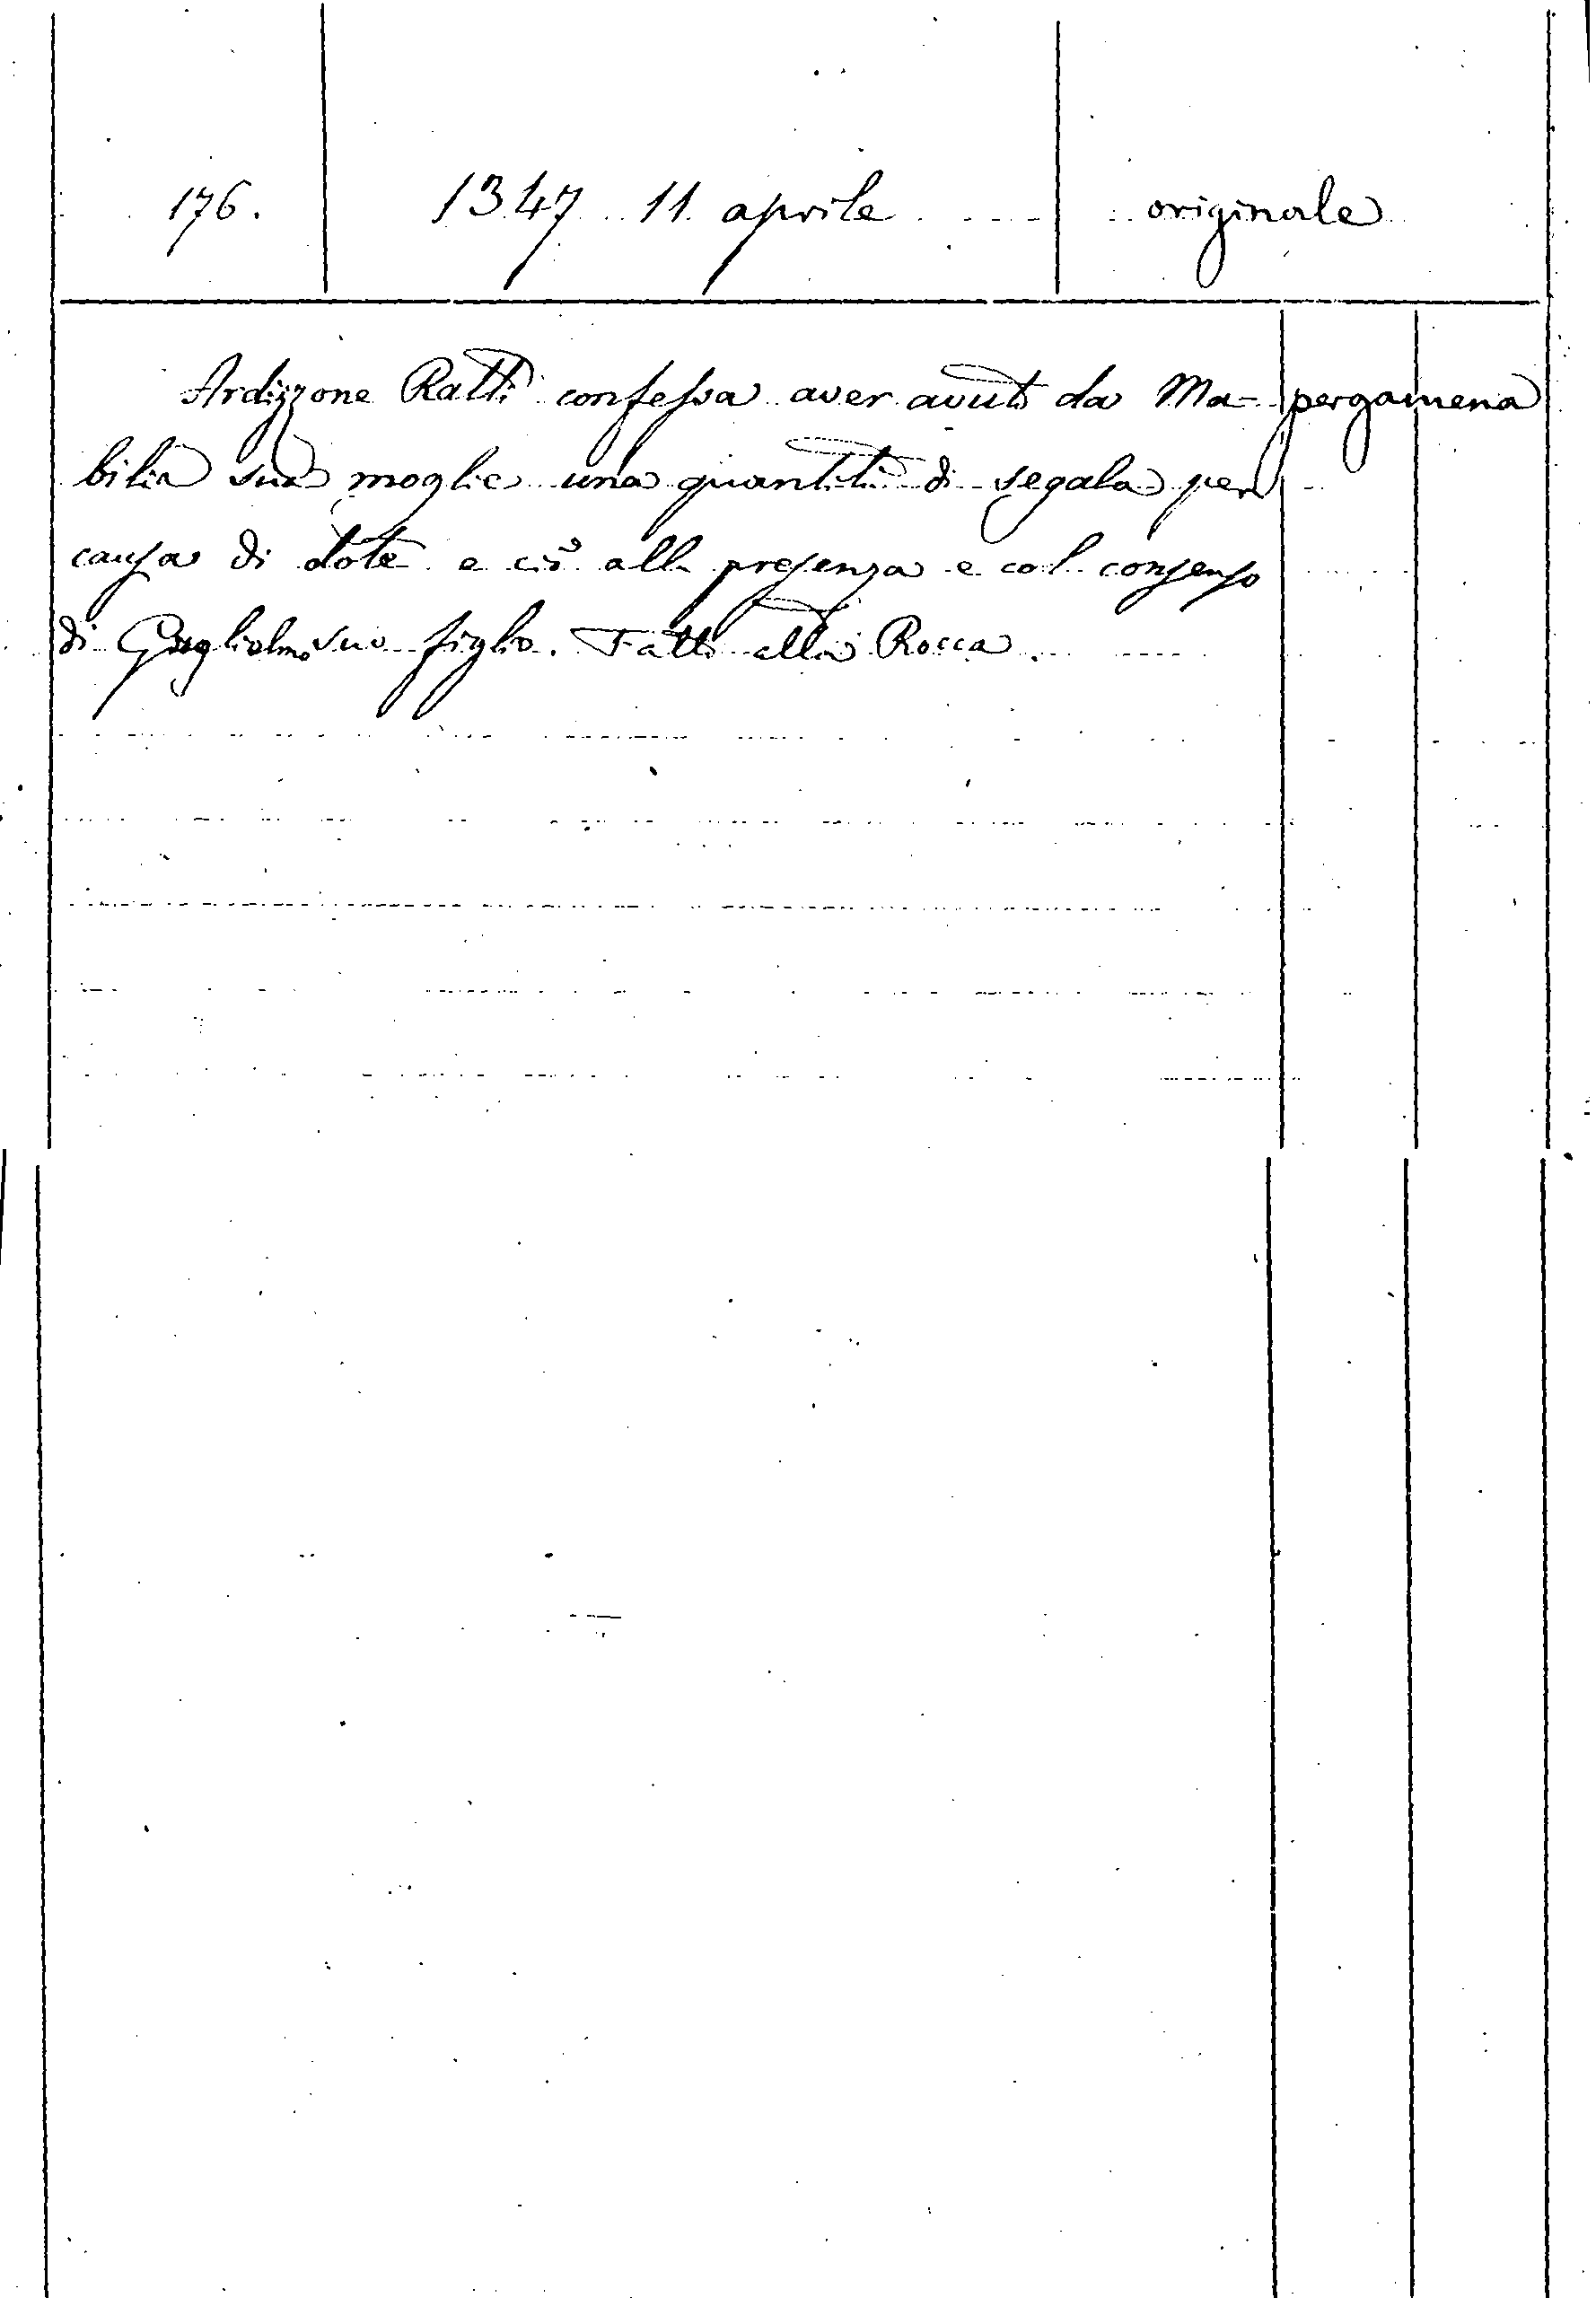 176. 1347 11 aprile originale
Ardizzone Ratti confessa aver avuto da Ma- pergamena
bilia sua moglie una quantità di segala per
causa di dote e ciò alla presenza e col consenso
di Guglielmo suo figlio. Fatto alla Rocca.